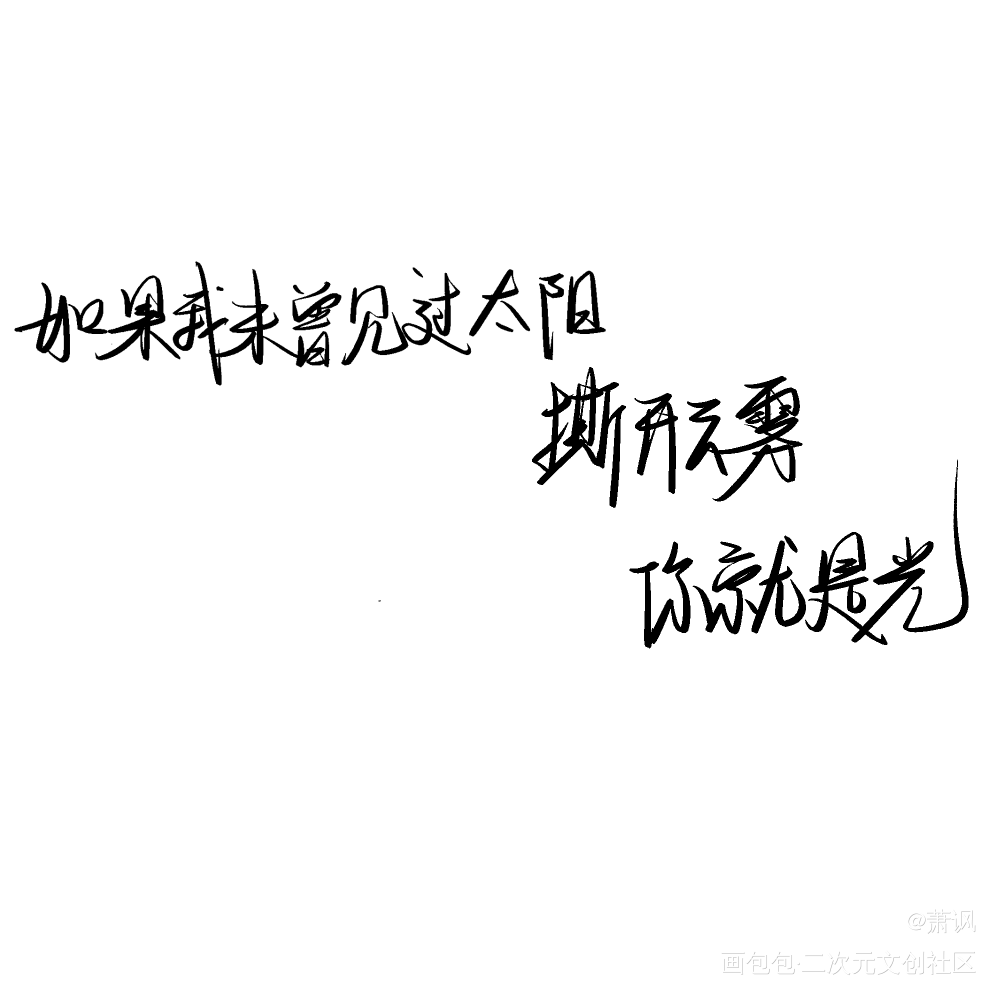 如果我未曾见过太阳
撕开云雾
你就是光
@萧讽
画包包·二次元文创社区